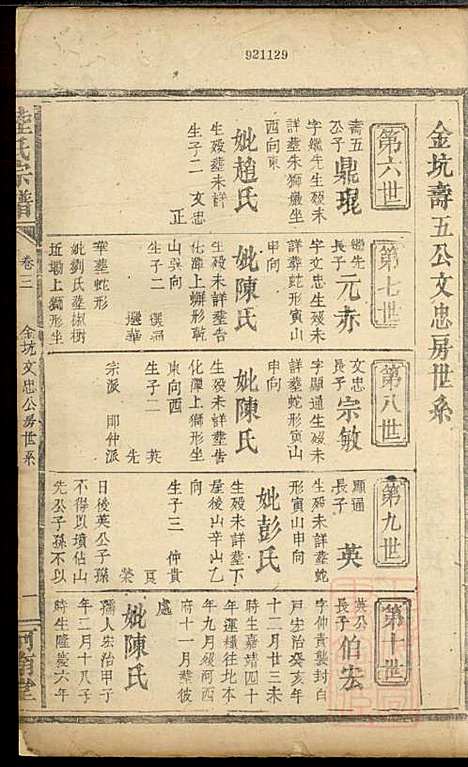 921129
金坑壽五公文忠房世系
第六世
壽五
公子
鼎琨
字繼先生殁未
詳塟朱獅巖坐
西向東
妣趙氏
生殁塟未詳
生子二 文忠
正
第七世
繼先
長子
元赤
字文忠生殁未
詳塟蛇形寅山
申向
妣陳氏
生殁未詳塟告
化潭上蠏形乾
山巽向
生子二
華塟蛇形
妣劉氏塟椒樹
近塲上獅形坐
第八世
文忠
長子
宗敏
字顯通生殁未
詳塟蛇形寅山
申向
妣陳氏
生殁未詳塟告
化潭上獅形坐
東向西
生子二 英
先
宗派 即仲派
第九世
顯通
長子
英
生殁未詳塟蛇
形寅山申向
妣彭氏
生殁未詳塟下
屋後山辛山乙
向
生子三 仲貴
榮
日後英公子孫
不得以墳佔山
先公子孫不以
第十世
英公
長子
伯宏
字仲貴襲封白
戸宏治癸亥年
十二月廿三未
時生嘉靖四十
年運糧往北本
年九月緩河西
府十一月塟彼
處
妣陳氏
孺人宏治甲子
年二月十八子
時生隆慶六年
氏宗譜
卷二
金坑文忠公房世系
一
河南堂